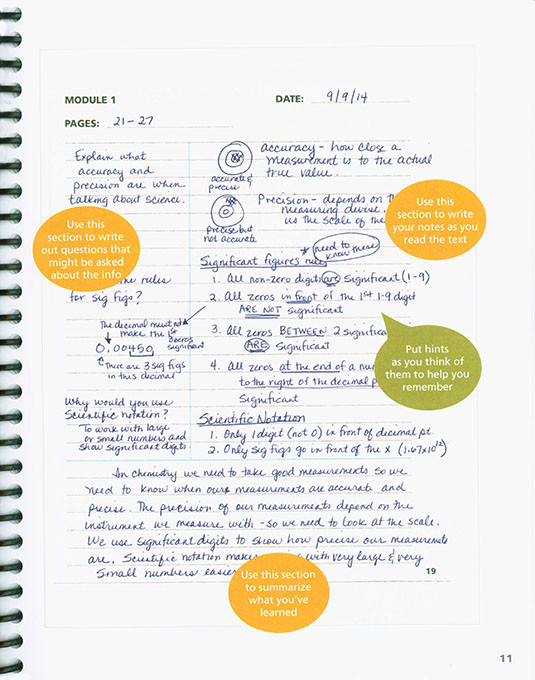 MODULE 1
DATE: 9/9/14
PAGES: 21-27
Explain what
accuracy and
precision are when
talking about science.
accurate &
precise
Precise but
not accurate
accuracy - how close a
measurement is to the actual
true value.
Precision - depends on
measuring
us the scale of the
Use this
section to write
out questions that
might be asked
about the info
Use this
section to write
your notes as you
read the text
the rules
for sig figs?
The decimal must not
make the 1st
zeros
significant
0.00450
There are 3 sig figs
in this decimal
Why would you use
Scientific notation?
To work with large
or small numbers and
show significant digits
Significant figures rules
need to
know
1. All non-zero digits are Significant (1-9)
2. All zeros in front of the 1st 1-9 digit
ARE NOT significant
3. All zeros BETWEEN 2 significa
ARE Significant
4. All zeros at the end of a nu
to the right of the decimal p
Significant
Put hints
as you think of
them to help you
remember
Scientific Notation
1. Only 1 digit (not 0) in front of decimal pt.
2. Only Sig figs go in front of the x (1.67x10¹²)
In chemistry we need to take good measurements so we
need to know when our measurements are accurate and
precise. The precision of our measurements depend on the
instrument we measure with - so we need to look at the scale.
We use significant digits to show how precise our measurements
are. Scientific notation makes with very large & very
Small numbers easier
Use this section
to summarize
what you've
learned
19
11